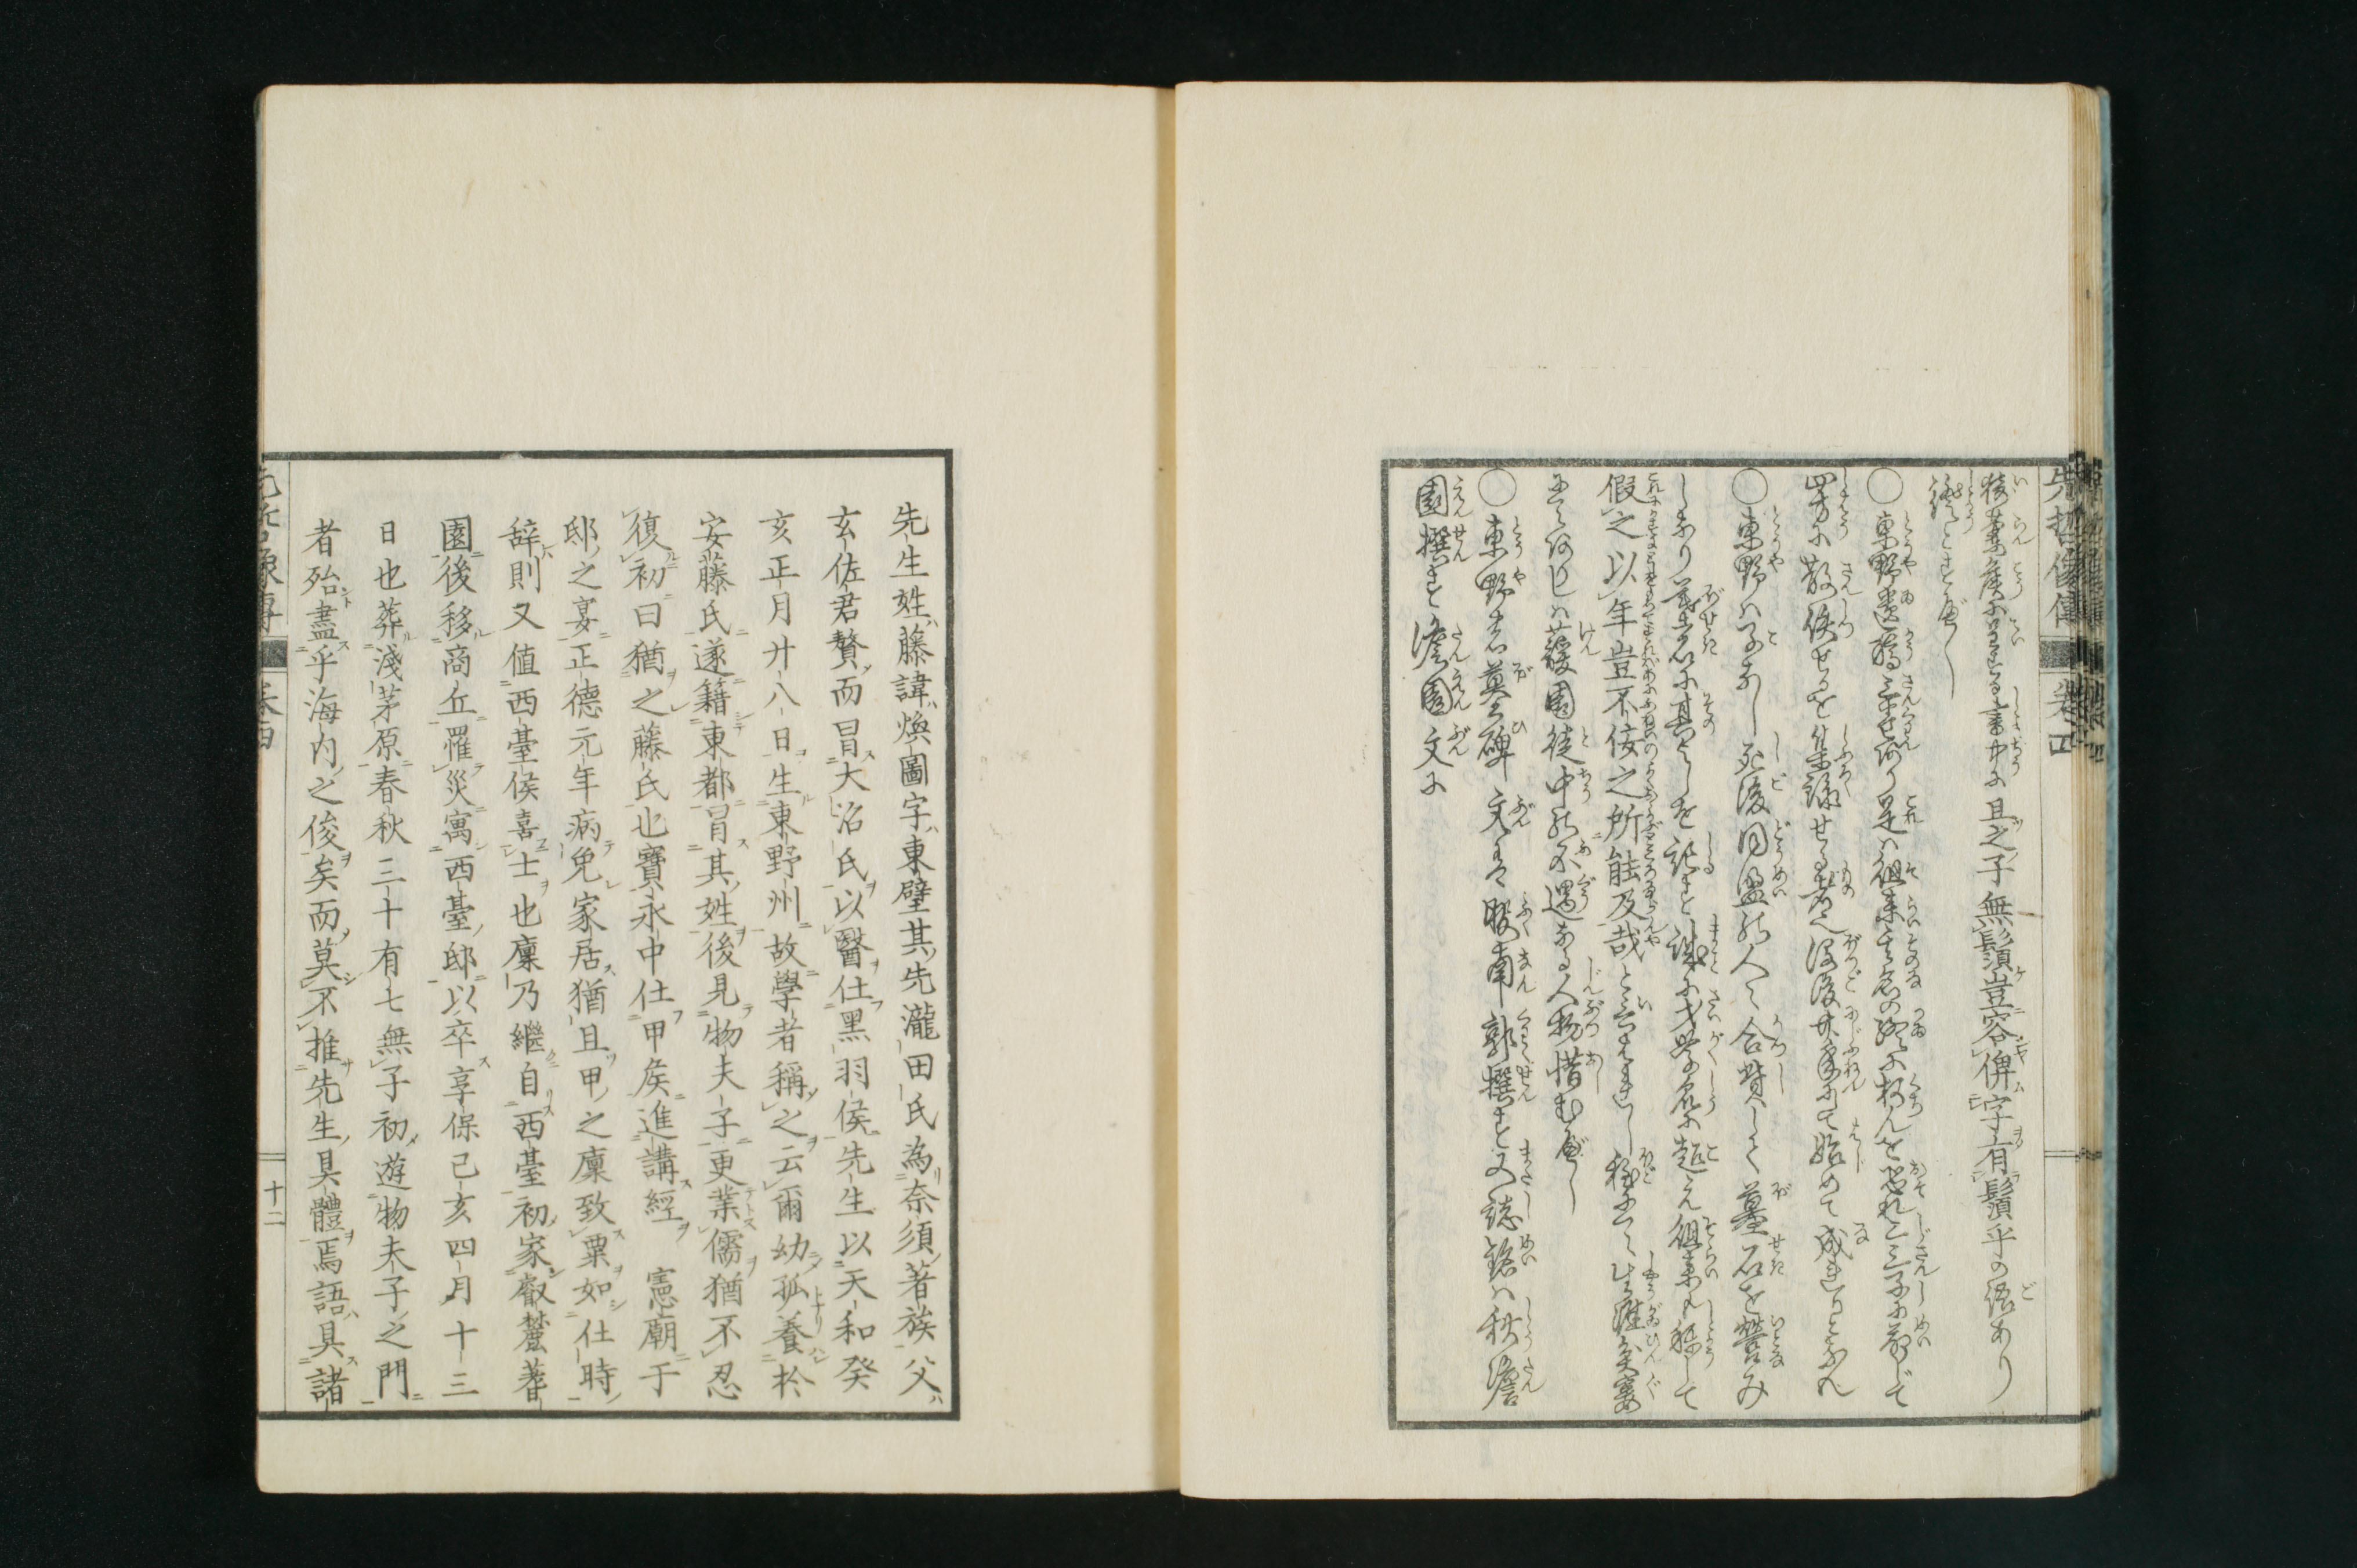 先哲像傳 卷四
猗蘭侯に呈する書中に且之子無鬚豈容俾字有鬚乎の語あり
徴とすべし
○東野遺稿三巻あり是ハ徂來其名の終に朽んを恐れ二三子に命じて
四方に散佚せるを集録せる者也没後廿年にて始めて成れりといふ
○東野ハ子なし死後同盟の人々合貲して墓石を營み
しなり墓石に其よしを記す誠に才学の名に超え徂來も稱して
假之以年豈不佞之所能及哉と言ハれし程にて生涯貧窶
にてありしハ蘐園徒中の不遇なる人物惜むべし
○東野の墓碑文は服南郭撰す又誌銘ハ秋澹
園撰す澹園文に
先生姓藤諱煥圖字東壁其先瀧田氏為奈須著族父
玄佐君贅而冒大沼氏以醫仕黑羽侯先生以天和癸
亥正月廿八日生東野州故學者稱之云爾幼孤養於
安藤氏遂籍東都冒其姓後見物夫子更業儒猶不忍
復初曰猶之藤氏也寶永中仕甲侯進講經 憲廟于
邸之宴正德元年病免家居猶且甲之廩致粟如仕時
辞則又值西臺侯喜士也廩乃繼自西臺初家叡麓著
園後移商丘罹災寓西臺邸以卒享保己亥四月十三
日也葬淺茅原春秋三十有七無子初遊物夫子之門
者殆盡乎海内之俊矣而莫不推先生具體焉語具諸
先哲像傳 卷四 十二